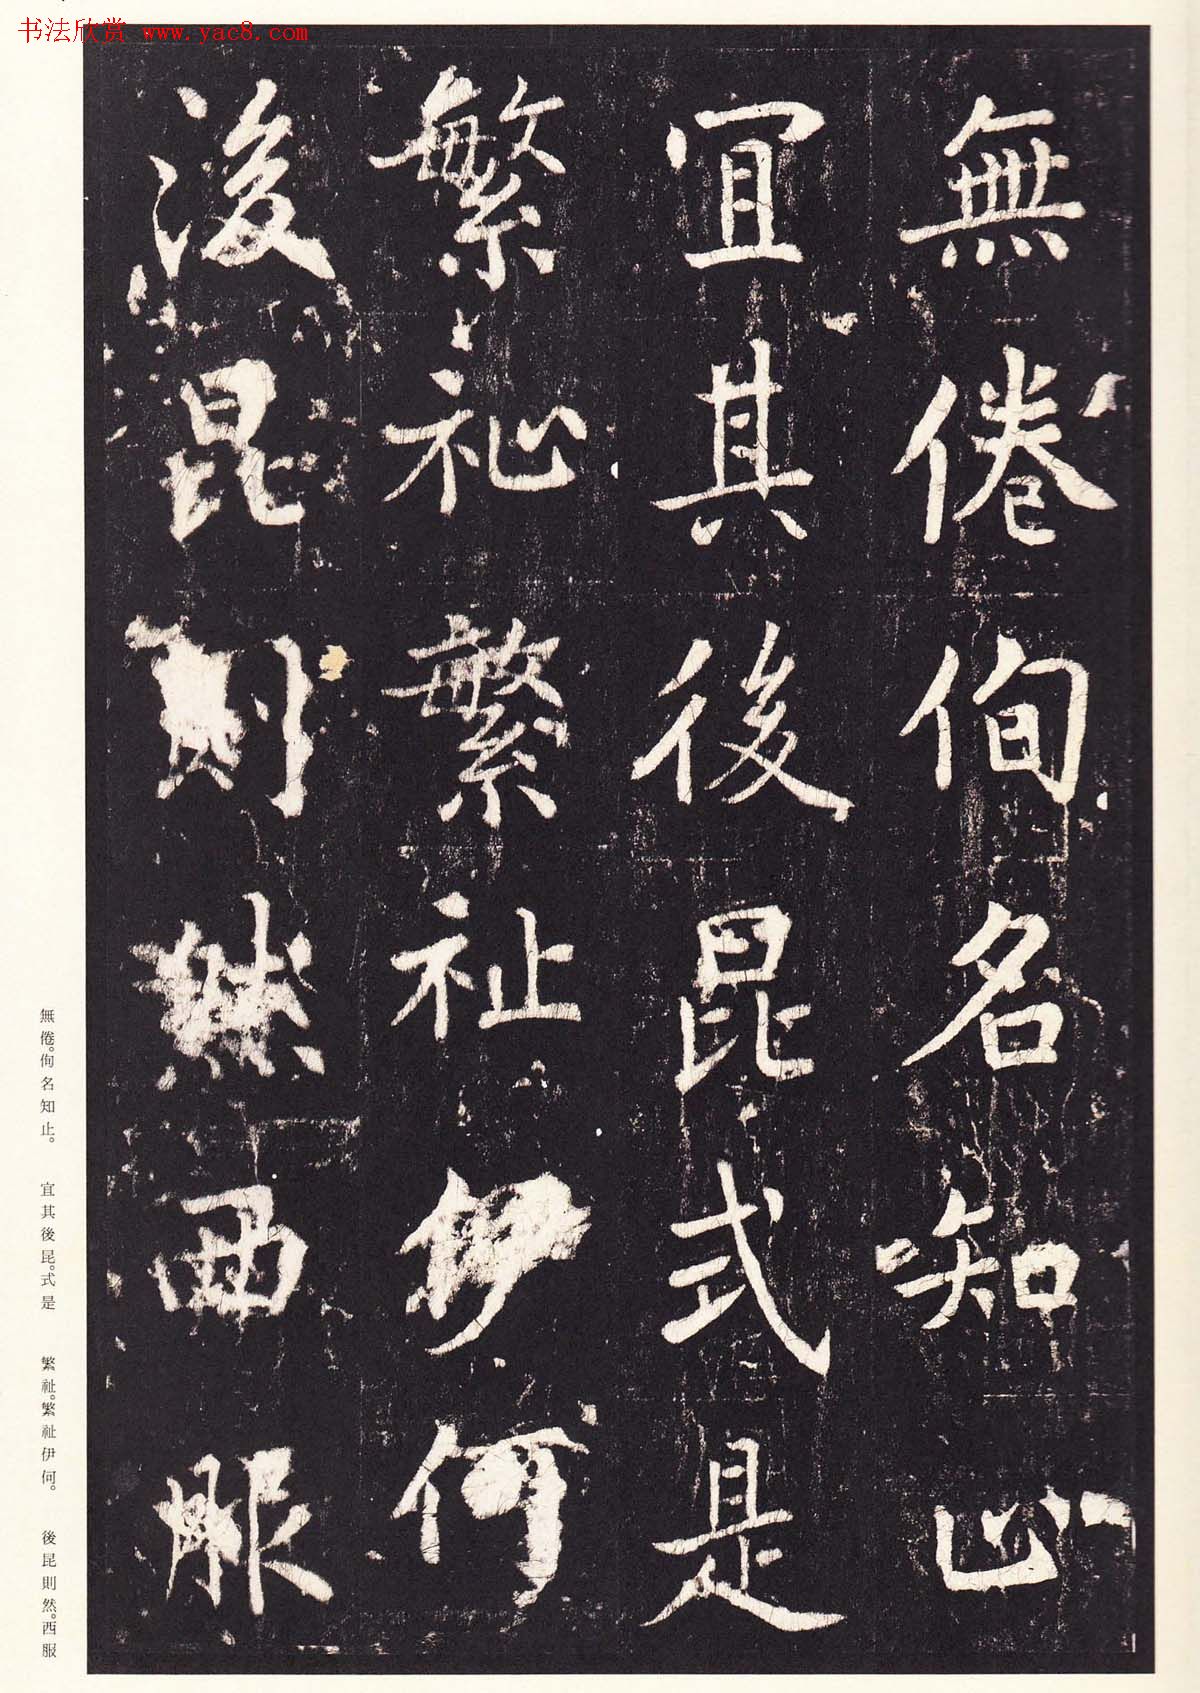 书法欣赏 www.yac8.com
無倦徇名知止
宜其後昆式是
繁祉繁祉伊何
後昆則然西服
無倦。徇名知止。 宜其後昆。式是 繁祉。繁祉伊何。 後昆則然。西服